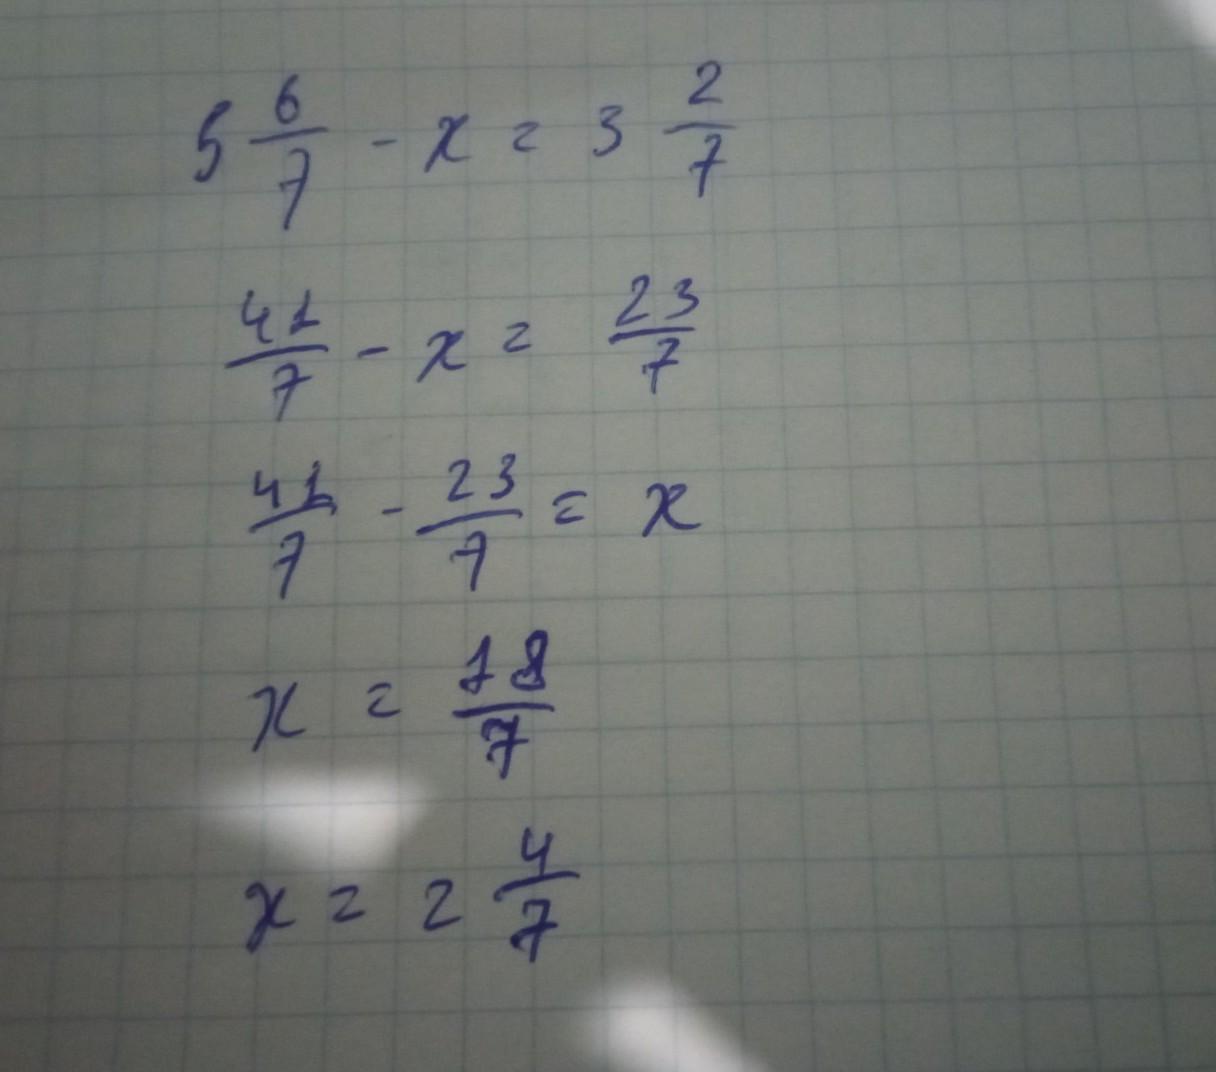 5 6/7 - x = 3 2/7
41/7 - x = 23/7
41/7 - 23/7 = x
x = 18/7
x = 2 4/7